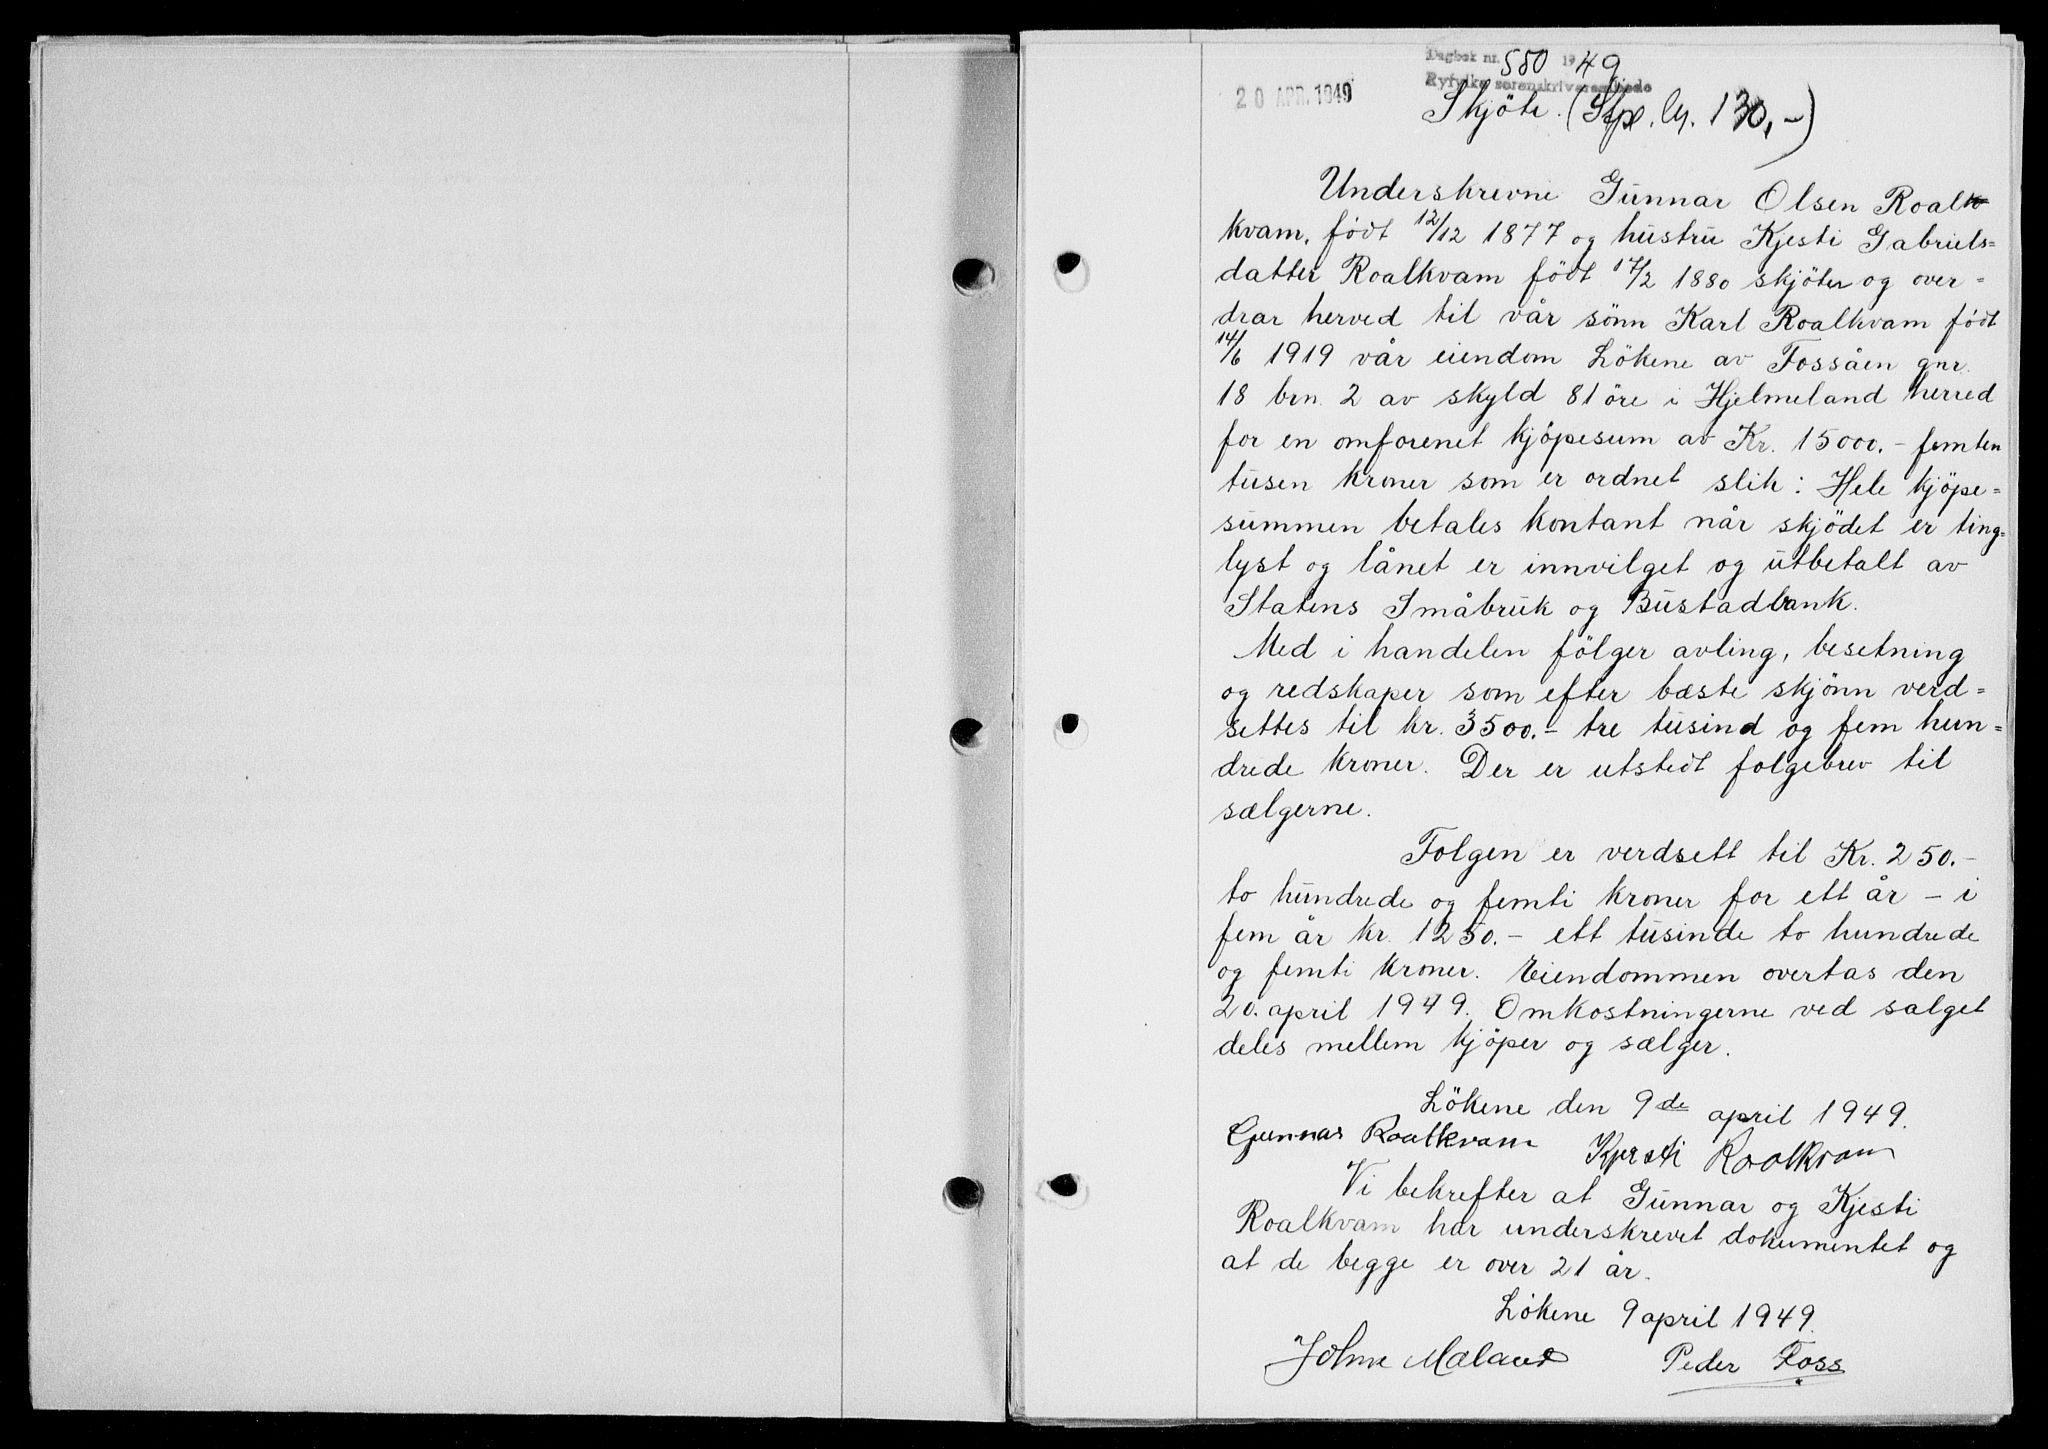 Dagbok nr. 580 1949
Ryfylke sorenskriverembede
20 APR. 1949
Skjöte. (Stpl. 130,-)
Underskrevne Gunnar Olsen Roal
kvam, födt 12/12 1877 og hustru Kjesti Gabriels=
datter Roalkvam födt 17/2 1880 skjöter og over=
drar herved til vår sönn Karl Roalkvam födt
14/6 1919 vår eiendom Lökene av Fossåen gnr.
18 brn. 2 av skyld 81 öre i Hjelmeland herred
for en omforenet kjöpesum av Kr. 15000.- femten
tusen kroner som er ordnet slik: Hele kjöpe=
summen betales kontant når skjödet er ting=
lyst og lånet er innvilget og utbetalt av
Statens Småbruk og Bustadbank.
Med i handelen fölger avling, besetning
og redskaper som efter bæste skjönn verd=
settes til kr. 3500.- tre tusind og fem hun=
drede kroner. Der er utstedt folgebrev til
sælgerne.
Folgen er verdsett til Kr. 250.-
to hundrede og femti kroner for ett år - i
fem år kr. 1250.- ett tusinde to hundrede
og femti kroner. Eiendommen overtas den
20. april 1949. Omkostningerne ved salget
deles mellem kjöper og sælger.
Lökene den 9de april 1949.
Gunnar Roalkvam Kjersti Roalkvam
Vi bekrefter at Gunnar og Kjesti
Roalkvam har underskrevet dokumentet og
at de begge er over 21 år.
Lökene 9 april 1949.
Johne Mæland Peder Foss